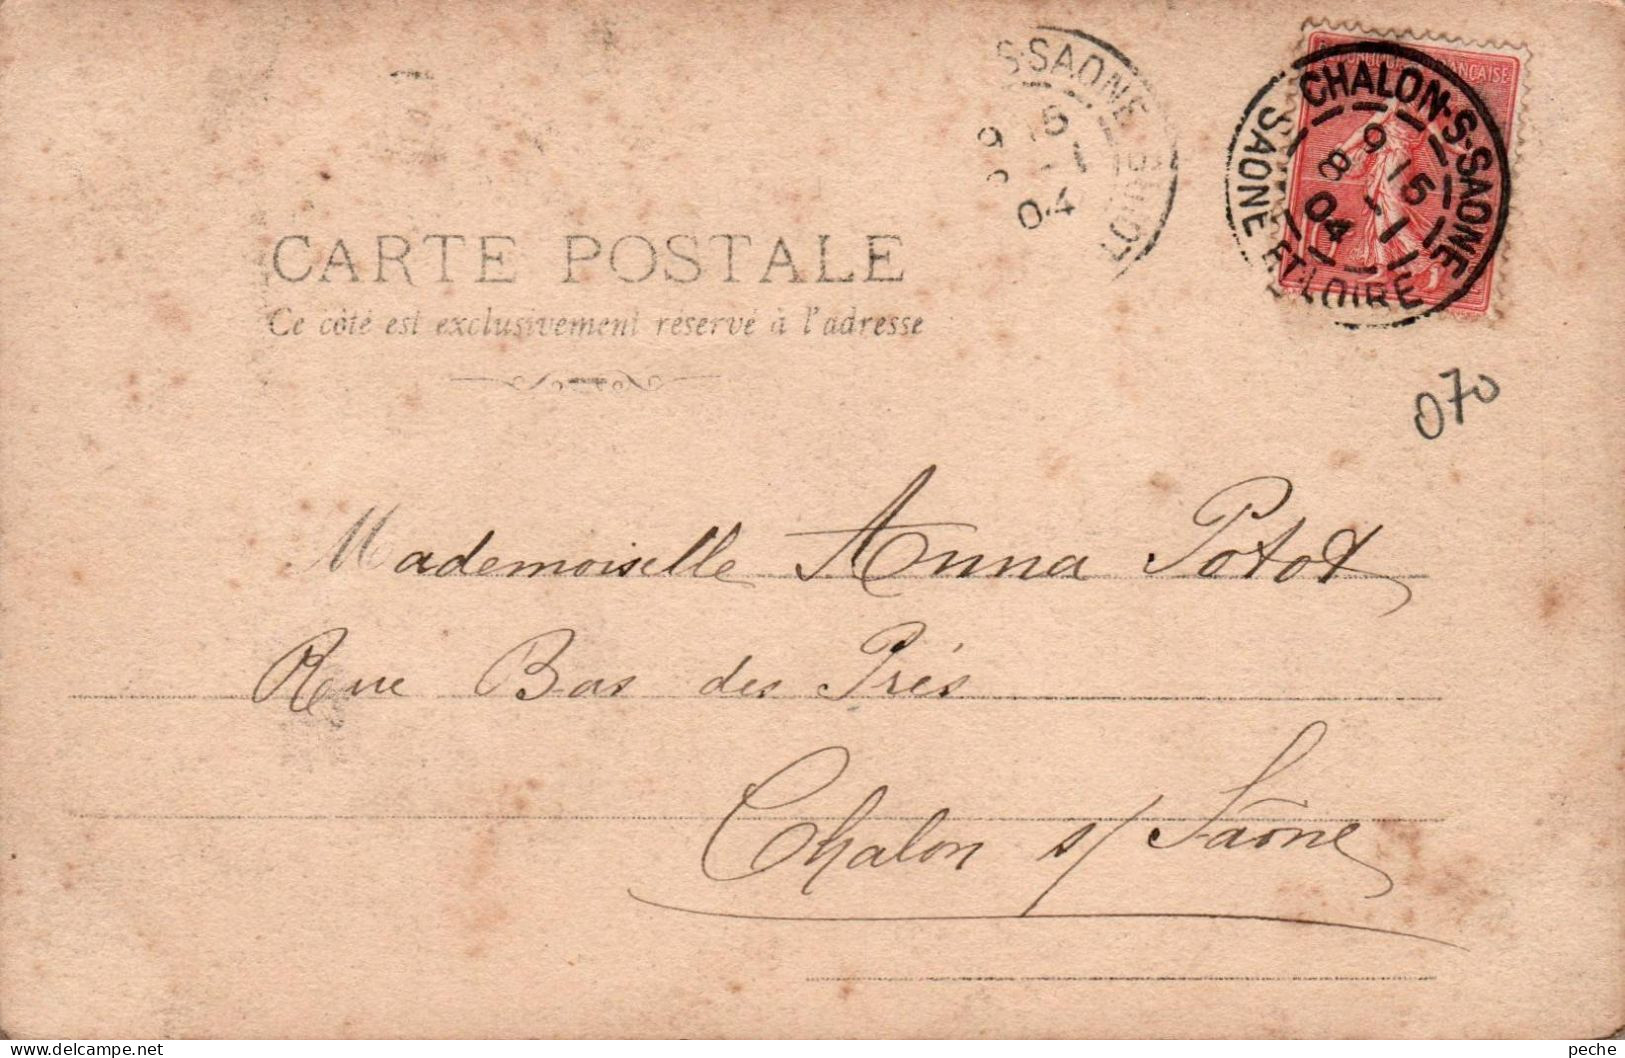 CHALON-S-SAONE
9 15
8 -1
04
SAONE ET-LOIRE
S-SAONE
9 15
-1
04
CARTE POSTALE
Ce côté est exclusivement réservé à l'adresse
070
Mademoiselle Anna Potot
Rue Bas des Prés
Chalon s/ Saône
peche